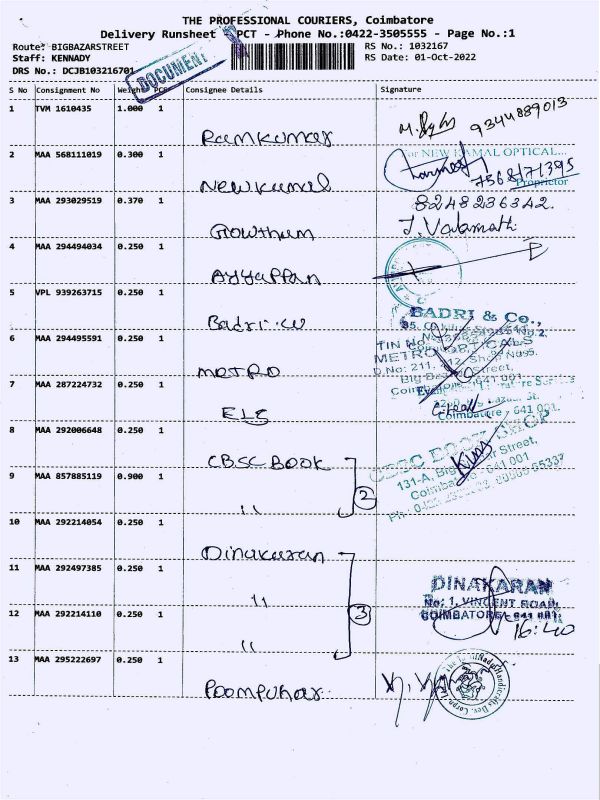 THE PROFESSIONAL COURIERS, Coimbatore
Delivery Runsheet PCT - Phone No.:0422-3505555 - Page No.:1
Route: BIGBAZARSTREET
RS No.: 1032167
Staff: KENNADY
RS Date: 01-Oct-2022
DRS No.: DCJB103216701
DOCUMENT
S No Consignment No Weight PCS Consignee Details Signature
1 TVM 1610435 1.000 1
Ramkumar 9344889013
2 MAA 568111019 0.300 1
For NEW KAMAL OPTICAL...
Newkamal
Proprietor
3 MAA 293029519 0.370 1 8248236342.
Gowtham J. Valarmathi
4 MAA 294494034 0.250 1
Ayyappan
5 VPL 939263715 0.250 1
Badri.co BADRI & Co.,
6 MAA 294495591 0.250 1
TIN No
METRO OPTICALS
METRO D.No: 211, 212,
Street,
7 MAA 287224732 0.250 1
ELE
Coimbatore - 641 001.
8 MAA 292006648 0.250 1
CBSC BOOK CBSC BOOK SHOP
9 MAA 857885119 0.900 1
131-A, Big Street,
Coimbatore - 641 001
,, 2
10 MAA 292214054 0.250 1
Dinakaran
11 MAA 292497385 0.250 1
DINAKARAN
,, No: 1, VINCENT ROAD,
12 MAA 292214110 0.250 1
COIMBATORE - 641 001.
3 16:40
,,
13 MAA 295222697 0.250 1
Poompuhar